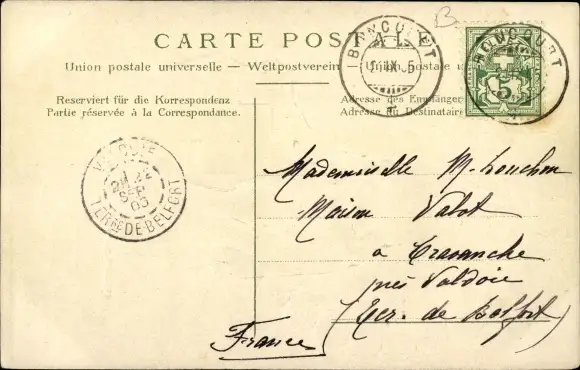 CARTE POSTALE
Union postale universelle — Weltpostverein — Union postale
Reserviert für die Korrespondenz
Partie réservée à la Correspondance.
Adresse des Empfängers
Adresse du Destinataire
BONCOURT
IX. 5
BONCOURT
5
VALDOIE
22
SEPT
05
TERRE DE BELFORT
Mademoiselle M.
Maison Valot
a Cravanche
près Valdoie
(Ter. de Belfort)
France
B